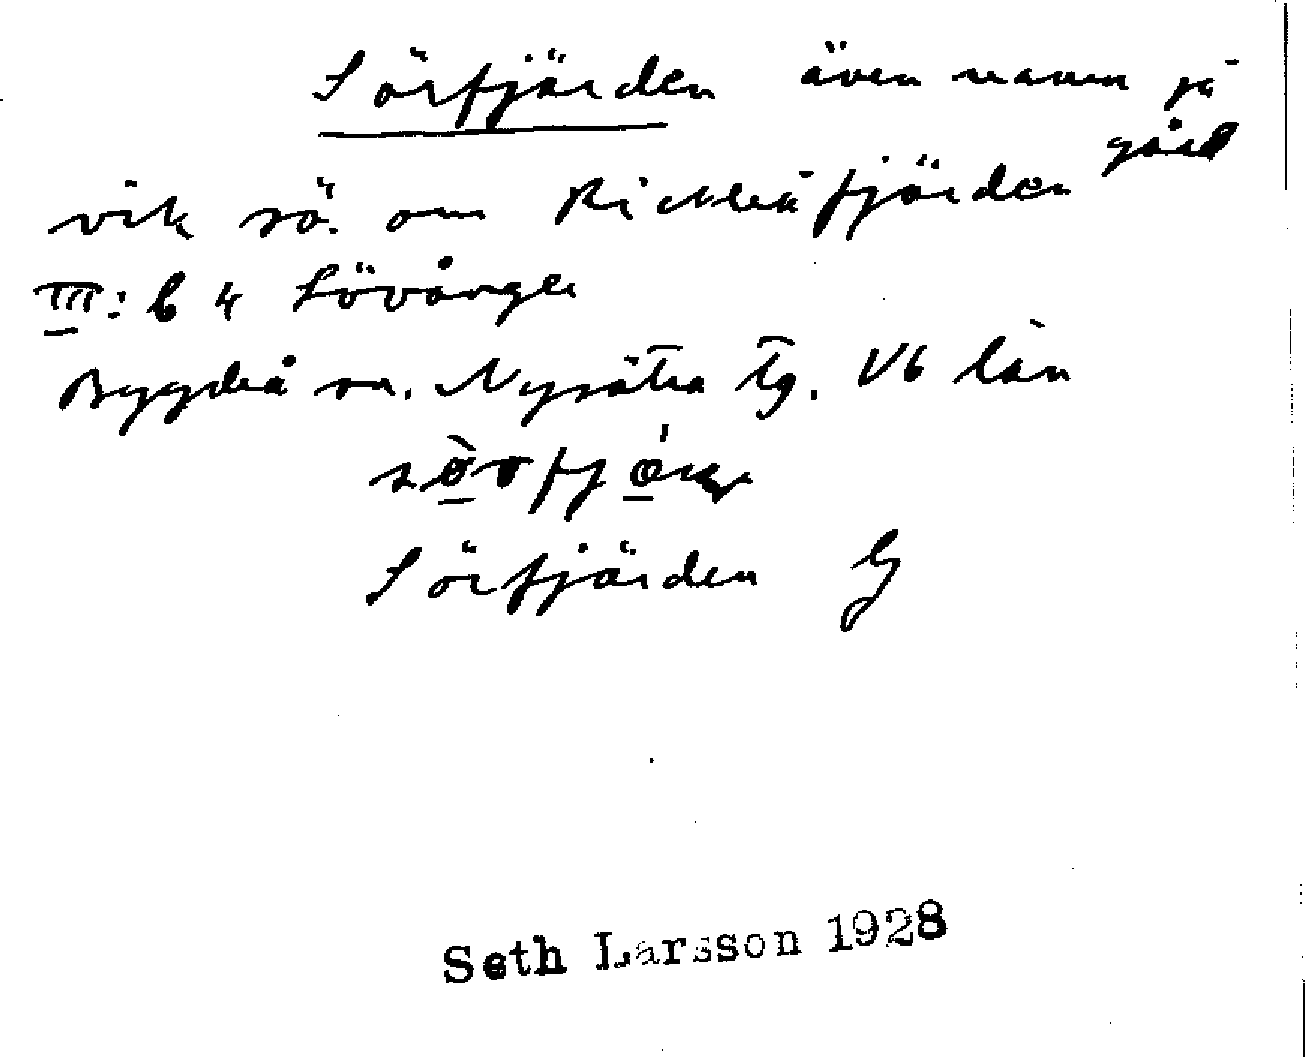 Sörfjärden även namn på
gård
vik sö. om Rickleåfjärden
III: b 4 Lövånger
Bygdeå sn. Nysätra tg. Vb län
Sörfjärden G
Seth Larsson 1928